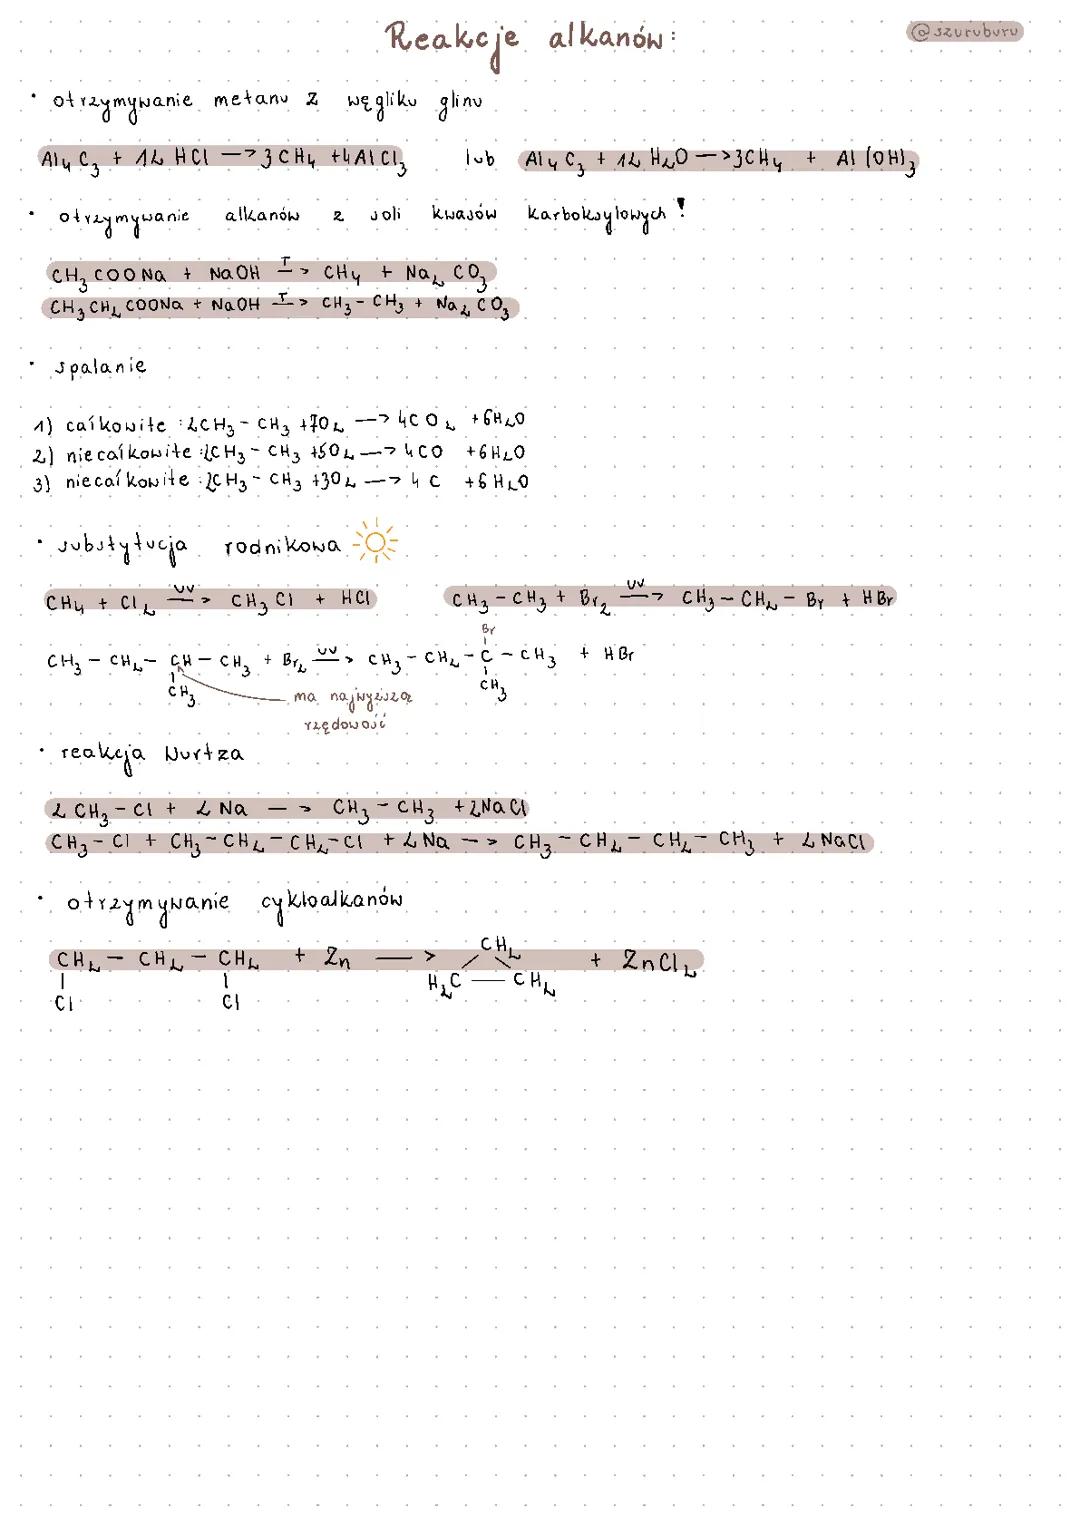 Reakcje alkanów:
@szuruburu
• otrzymywanie metanu z węgliku glinu
Al₄C₃ + 12 HCl —> 3 CH₄ + 4 AlCl₃ lub Al₄C₃ + 12 H₂O —> 3CH₄ + Al(OH)₃
• otrzymywanie alkanów z soli kwasów karboksylowych!
CH₃COONa + NaOH —T—> CH₄ + Na₂CO₃
CH₃CH₂COONa + NaOH —T—> CH₃ - CH₃ + Na₂CO₃
• spalanie
1) całkowite : 2CH₃ - CH₃ + 7O₂ —> 4CO₂ + 6H₂O
2) niecałkowite : 2CH₃ - CH₃ + 5O₂ —> 4CO + 6H₂O
3) niecałkowite : 2CH₃ - CH₃ + 3O₂ —> 4C + 6H₂O
• substytucja rodnikowa
CH₄ + Cl₂ —UV—> CH₃Cl + HCl CH₃ - CH₃ + Br₂ —UV—> CH₃ - CH₂ - Br + HBr
Br
CH₃ - CH₂ - CH - CH₃ + Br₂ —UV—> CH₃ - CH₂ - C - CH₃ + HBr
CH₃ CH₃
ma najwyższą
rzędowość
• reakcja Wurtza
2 CH₃ - Cl + 2 Na —> CH₃ - CH₃ + 2NaCl
CH₃ - Cl + CH₃ - CH₂ - CH₂ - Cl + 2 Na —> CH₃ - CH₂ - CH₂ - CH₃ + 2 NaCl
• otrzymywanie cykloalkanów
CH₂
CH₂ - CH₂ - CH₂ + Zn —> H₂C — CH₂ + ZnCl₂
Cl Cl